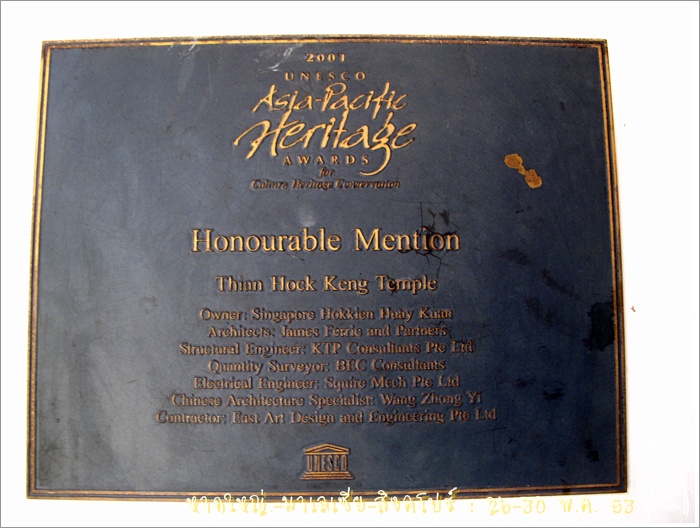 2001
UNESCO
Asia-Pacific
Heritage
AWARDS
for
Culture Heritage Conservation
Honourable Mention
Thian Hock Keng Temple
Owner: Singapore Hokkien Huay Kuan
Architects: James Ferrie and Partners
Structural Engineer: KTP Consultants Pte Ltd
Quantity Surveyor: BEC Consultants
Electrical Engineer: Squire Mech Pte Ltd
Chinese Architecture Specialist: Wang Zhong Yi
Contractor: East Art Design and Engineering Pte Ltd
UNESCO
หาดใหญ่-มาเลเซีย-สิงคโปร์ : 26-30 พ.ค. 53